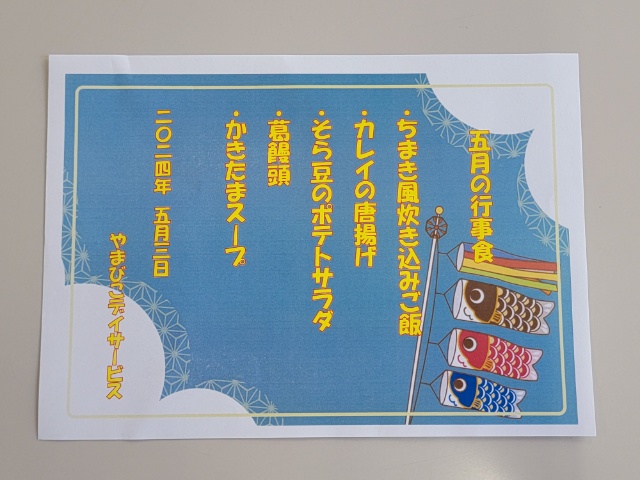 五月の行事食
・ちまき風炊き込みご飯
・カレイの唐揚げ
・そら豆のポテトサラダ
・葛饅頭
・かきたまスープ
二〇二四年 五月三日
やまびこデイサービス